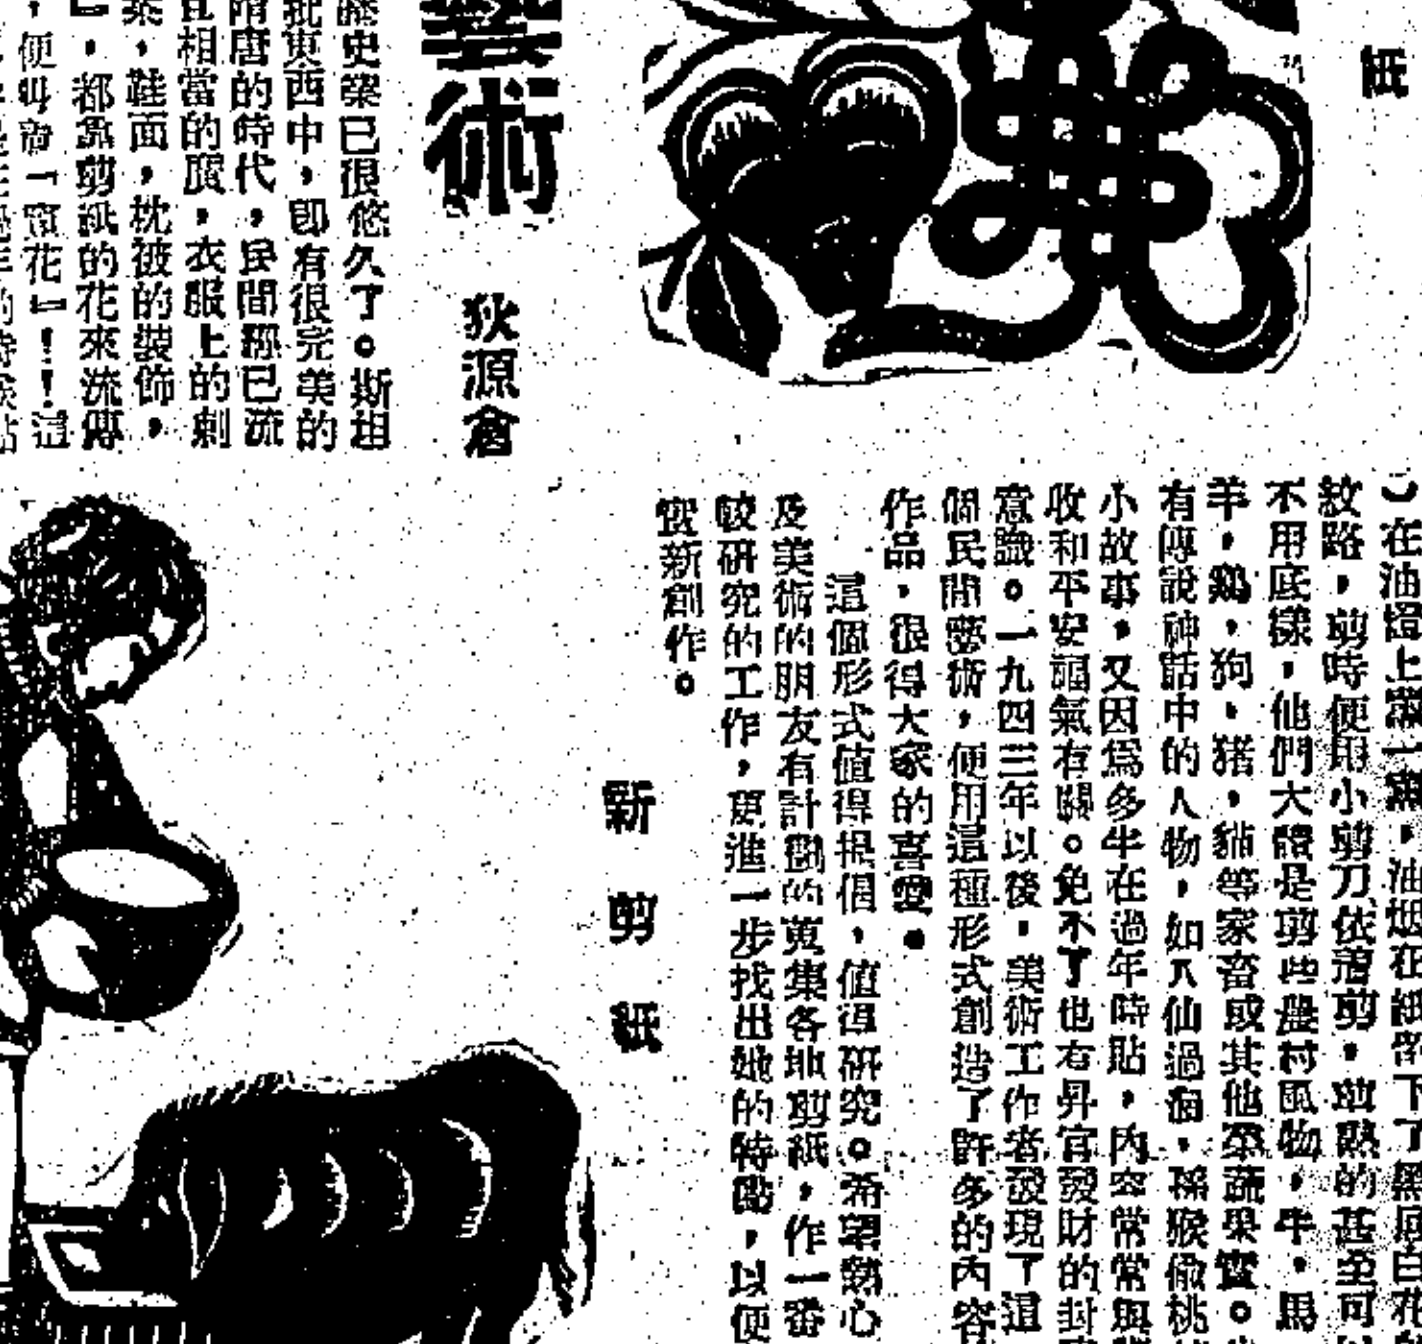 紙
藝術
狄源倉
歷史業已很悠久了。斯坦
批東西中,即有很完美的
隋唐的時代,民間經已流
且相當的廣,衣服上的刺
案,鞋面,枕被的裝飾,
』,都靠剪紙的花來流傳
,便叫窗「窗花』!!這
)在油燈上薰一薰,油烟在紙留下了黑底白花
紋路,剪時便用小剪刀依着剪,剪熟的甚至可
不用底樣,他們大體是剪些農村風物,牛,馬
羊,鷄,狗,猪,貓等家畜或其他菜蔬果實。
有傳說神話中的人物,如八仙過海,孫猴偷桃
小故事,又因爲多半在過年時貼,內容常常與
收和平安福氣有關。免不了也有昇官發財的封
意識。一九四三年以後,美術工作者發現了這
個民間藝術,便用這種形式創造了許多的內容
作品,很得大家的喜愛。
這個形式值得提倡,值得研究。希望熱心
及美術的朋友有計劃的蒐集各地剪紙,作一番
較研究的工作,更進一步找出她的特點,以便
實新創作。
新剪紙